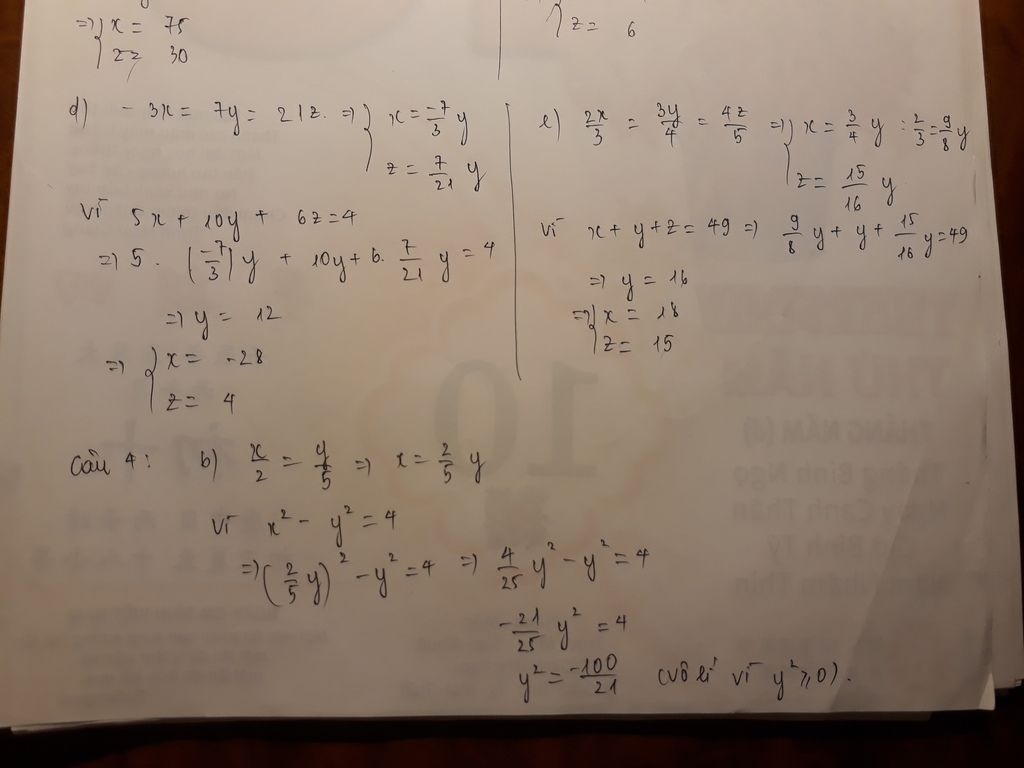 => { x = 75
z = 30
z = 6
d) - 3x = 7y = 21z. => { x = -7/3 y
z = 7/21 y
vì 5x + 10y + 6z = 4
=> 5 . (-7/3) y + 10y + 6. 7/21 y = 4
=> y = 12
=> { x = -28
z = 4
e) 2x/3 = 3y/4 = 4z/5 => { x = 3/4 y : 2/3 = 9/8 y
z = 15/16 y
vì x + y + z = 49 => 9/8 y + y + 15/16 y = 49
=> y = 16
=> { x = 18
z = 15
Câu 4 : b) x/2 = y/5 => x = 2/5 y
vì x² - y² = 4
=> (2/5 y)² - y² = 4 => 4/25 y² - y² = 4
-21/25 y² = 4
y² = -100/21 (vô lí vì y² ⩾ 0).
10
THÁNG NĂM (đ)
Tháng Bính Ngọ
Ngày Canh Thân